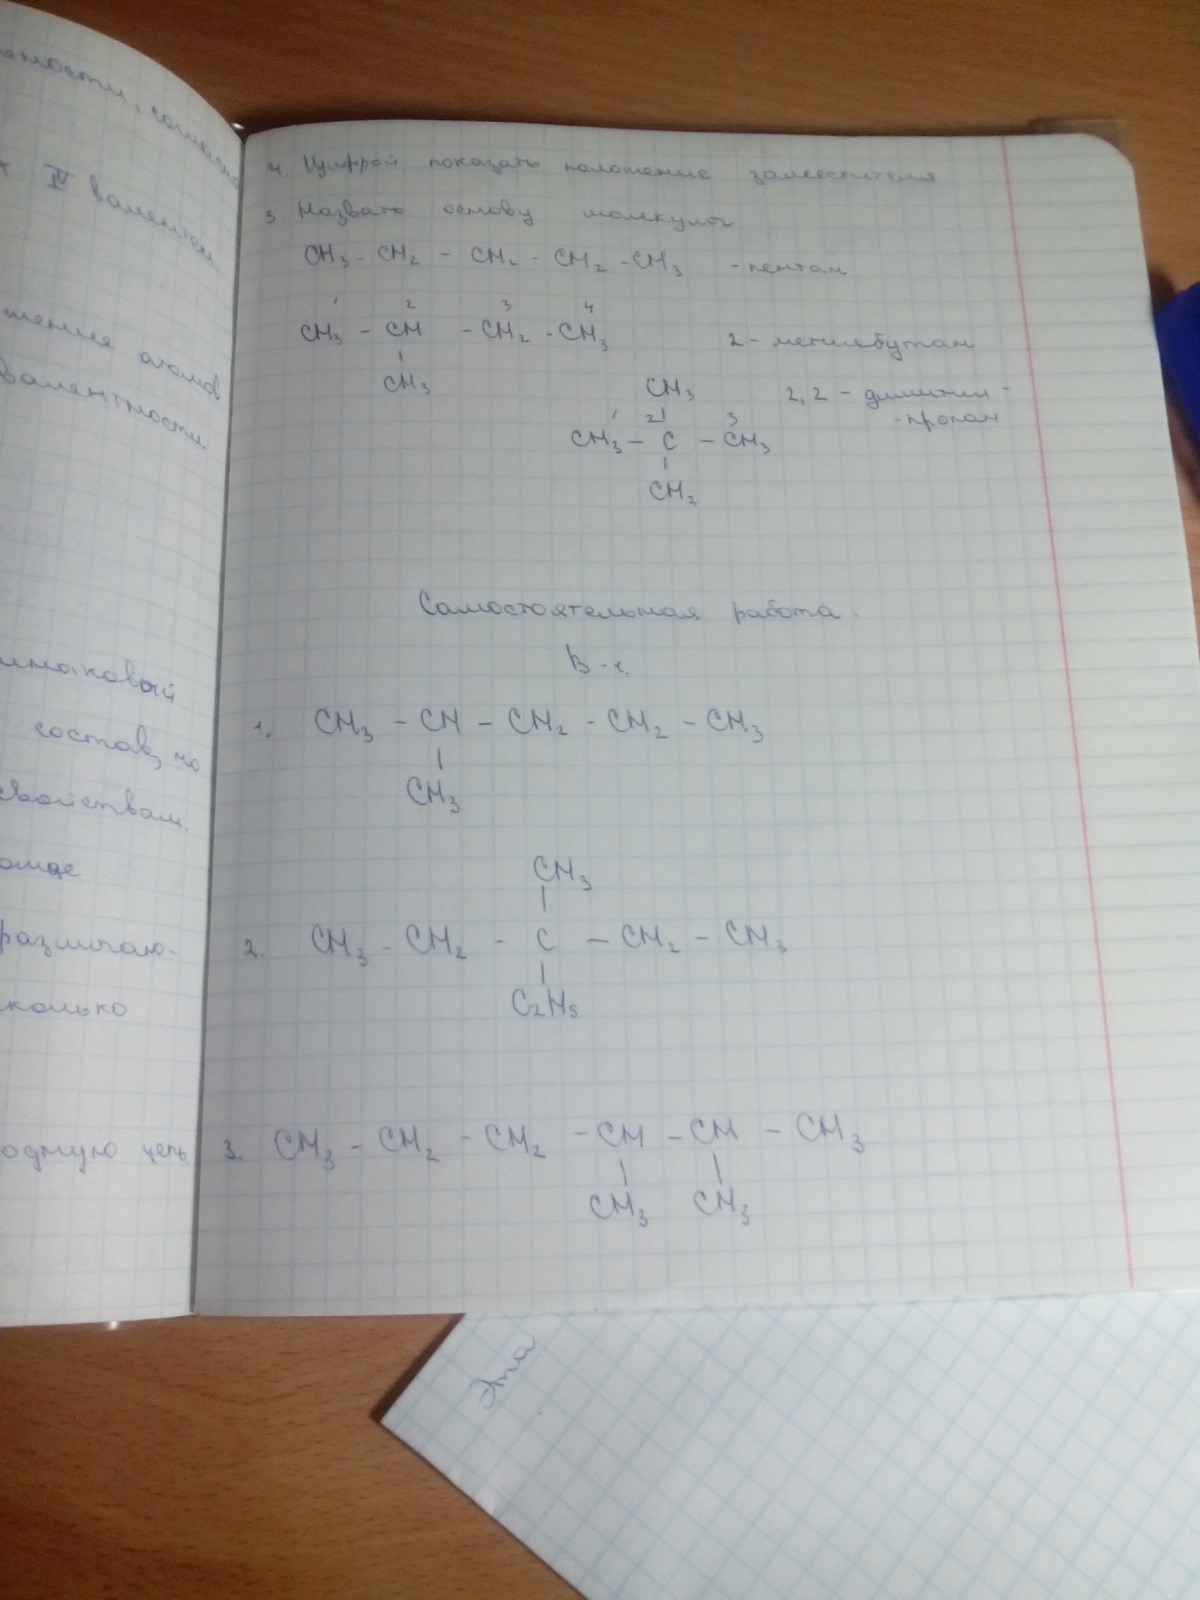 ности, согласно
IV валентен
жения атомов
валентности.
инаковый
состав, но
свойствам.
различаю-
сколько
одную цепь.
4 Цифрой показать положение заместителя
5 Назвать основу молкулы
CH3 - CH2 - CH2 - CH2 - CH3 - пентан
1 2 3 4
CH3 - CH - CH2 - CH3 2 - метилбутан
CH3
CH3 2,2 - диметил -
1 2 3 -пропан
CH3 - C - CH3
CH2
Самостоятельная работа.
1. CH3 - CH - CH2 - CH2 - CH3
CH3
CH3
2. CH3 - CH2 - C - CH2 - CH3
C2H5
3. CH3 - CH2 - CH2 - CH - CH - CH3
CH3 CH3
Эта